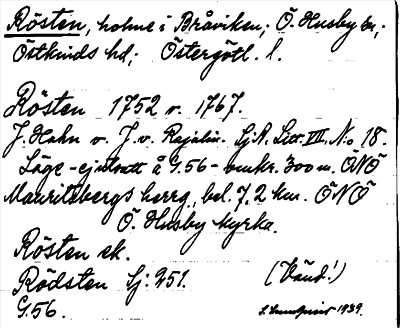 Rösten, holme i Bråviken; Ö. Husby sn,;
Östkinds hd; Östergötl. l.
Rösten 1752 o. 1767.
J. Hahn o. J. v. Rajalin. Sj.A. Litt. VII. No 18.
Läge - ej utsatt å G.56 - omkr. 300 m. ÖNÖ
Mauritzbergs herrg., bel. 7,2 km. ÖNÖ
Ö. Husby kyrka.
Rösten ek.
Rödsten Sj: 251.
(Vänd!)
G.56.
S. Lundqvist 1939.